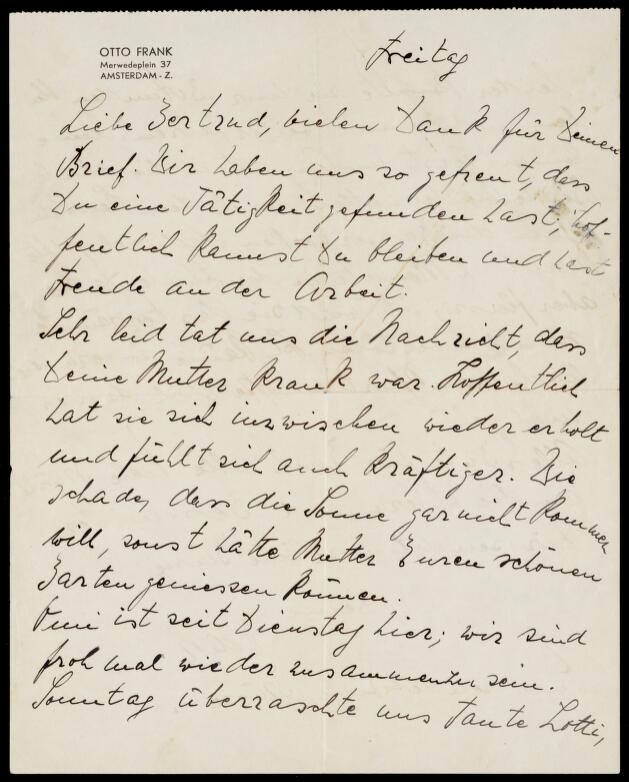 OTTO FRANK
Merwedeplein 37
AMSTERDAM - Z.
Freitag
Liebe Gertrud, vielen Dank für Deinen
Brief. Wir haben uns so gefreut, dass
Du eine Tätigkeit gefunden hast, hof-
fentlich kannst Du bleiben und hast
Freude an der Arbeit.
Sehr leid tat uns die Nachricht, dass
Deine Mutter krank war. Hoffentlich
hat sie sich inzwischen wieder erholt
und fühlt sich auch kräftiger. Wie
schade, dass die Sonne garnicht kommen
will, sonst hätte Mutter Euren schönen
Garten geniessen können.
Omi ist seit Dienstag hier; wir sind
froh mal wieder zusammenzusein.
Sonntag überraschte uns Tante Lotti,